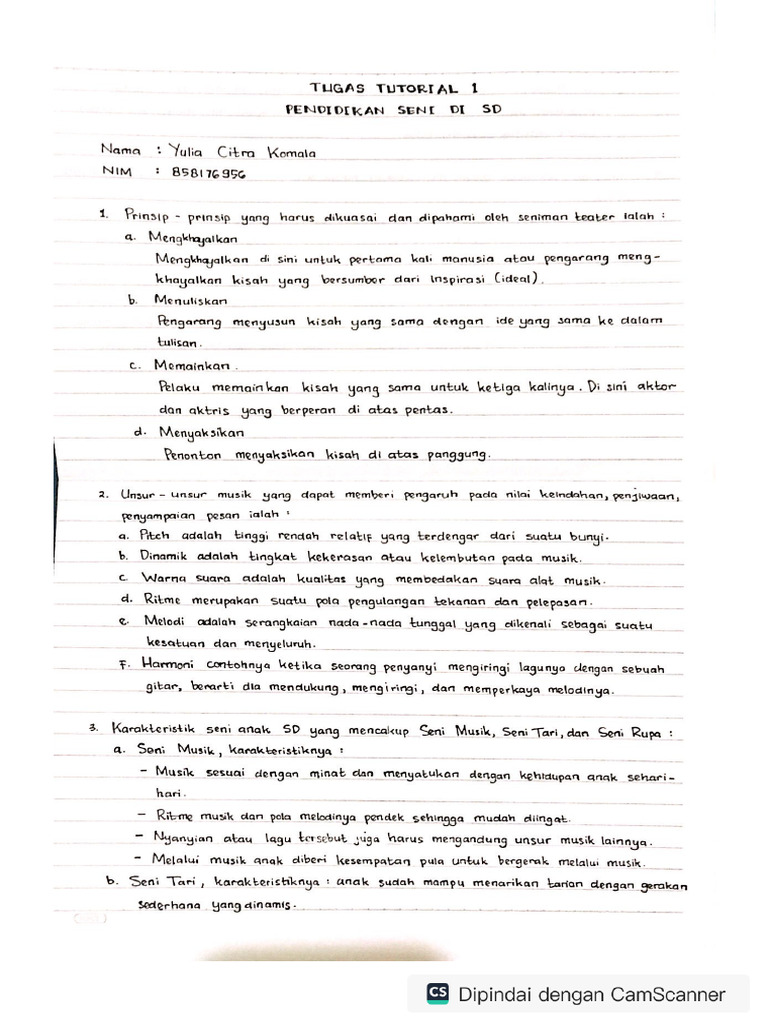 TUGAS TUTORIAL 1
PENDIDIKAN SENI DI SD
Nama : Yulia Citra Komala
NIM : 858176956
1. Prinsip - prinsip yang harus dikuasai dan dipahami oleh seniman teater ialah :
a. Mengkhayalkan
Mengkhayalkan di sini untuk pertama kali manusia atau pengarang meng-
khayalkan kisah yang bersumber dari Inspirasi (ideal).
b. Menuliskan
Pengarang menyusun kisah yang sama dengan ide yang sama ke dalam
tulisan.
c. Memainkan.
Pelaku memainkan kisah yang sama untuk ketiga kalinya. Di sini aktor
dan aktris yang berperan di atas pentas.
d. Menyaksikan
Penonton menyaksikan kisah di atas panggung.
2. Unsur - unsur musik yang dapat memberi pengaruh pada nilai keindahan, penjiwaan,
penyampaian pesan ialah :
a. Pitch adalah tinggi rendah relatif yang terdengar dari suatu bunyi.
b. Dinamik adalah tingkat kekerasan atau kelembutan pada musik.
c. Warna suara adalah kualitas yang membedakan suara alat musik.
d. Ritme merupakan suatu pola pengulangan tekanan dan pelepasan.
e. Melodi adalah serangkaian nada-nada tunggal yang dikenali sebagai suatu
kesatuan dan menyeluruh.
f. Harmoni contohnya ketika seorang penyanyi mengiringi lagunya dengan sebuah
gitar, berarti dia mendukung, mengiringi, dan memperkaya melodinya.
3. Karakteristik seni anak SD yang mencakup Seni Musik, Seni Tari, dan Seni Rupa :
a. Seni Musik, karakteristiknya :
- Musik sesuai dengan minat dan menyatukan dengan kehidupan anak sehari-
hari.
- Ritme musik dan pola melodinya pendek sehingga mudah diingat.
- Nyanyian atau lagu tersebut juga harus mengandung unsur musik lainnya.
- Melalui musik anak diberi kesempatan pula untuk bergerak melalui musik.
b. Seni Tari, karakteristiknya : anak sudah mampu menarikan tarian dengan gerakan
sederhana yang dinamis.
CS Dipindai dengan CamScanner